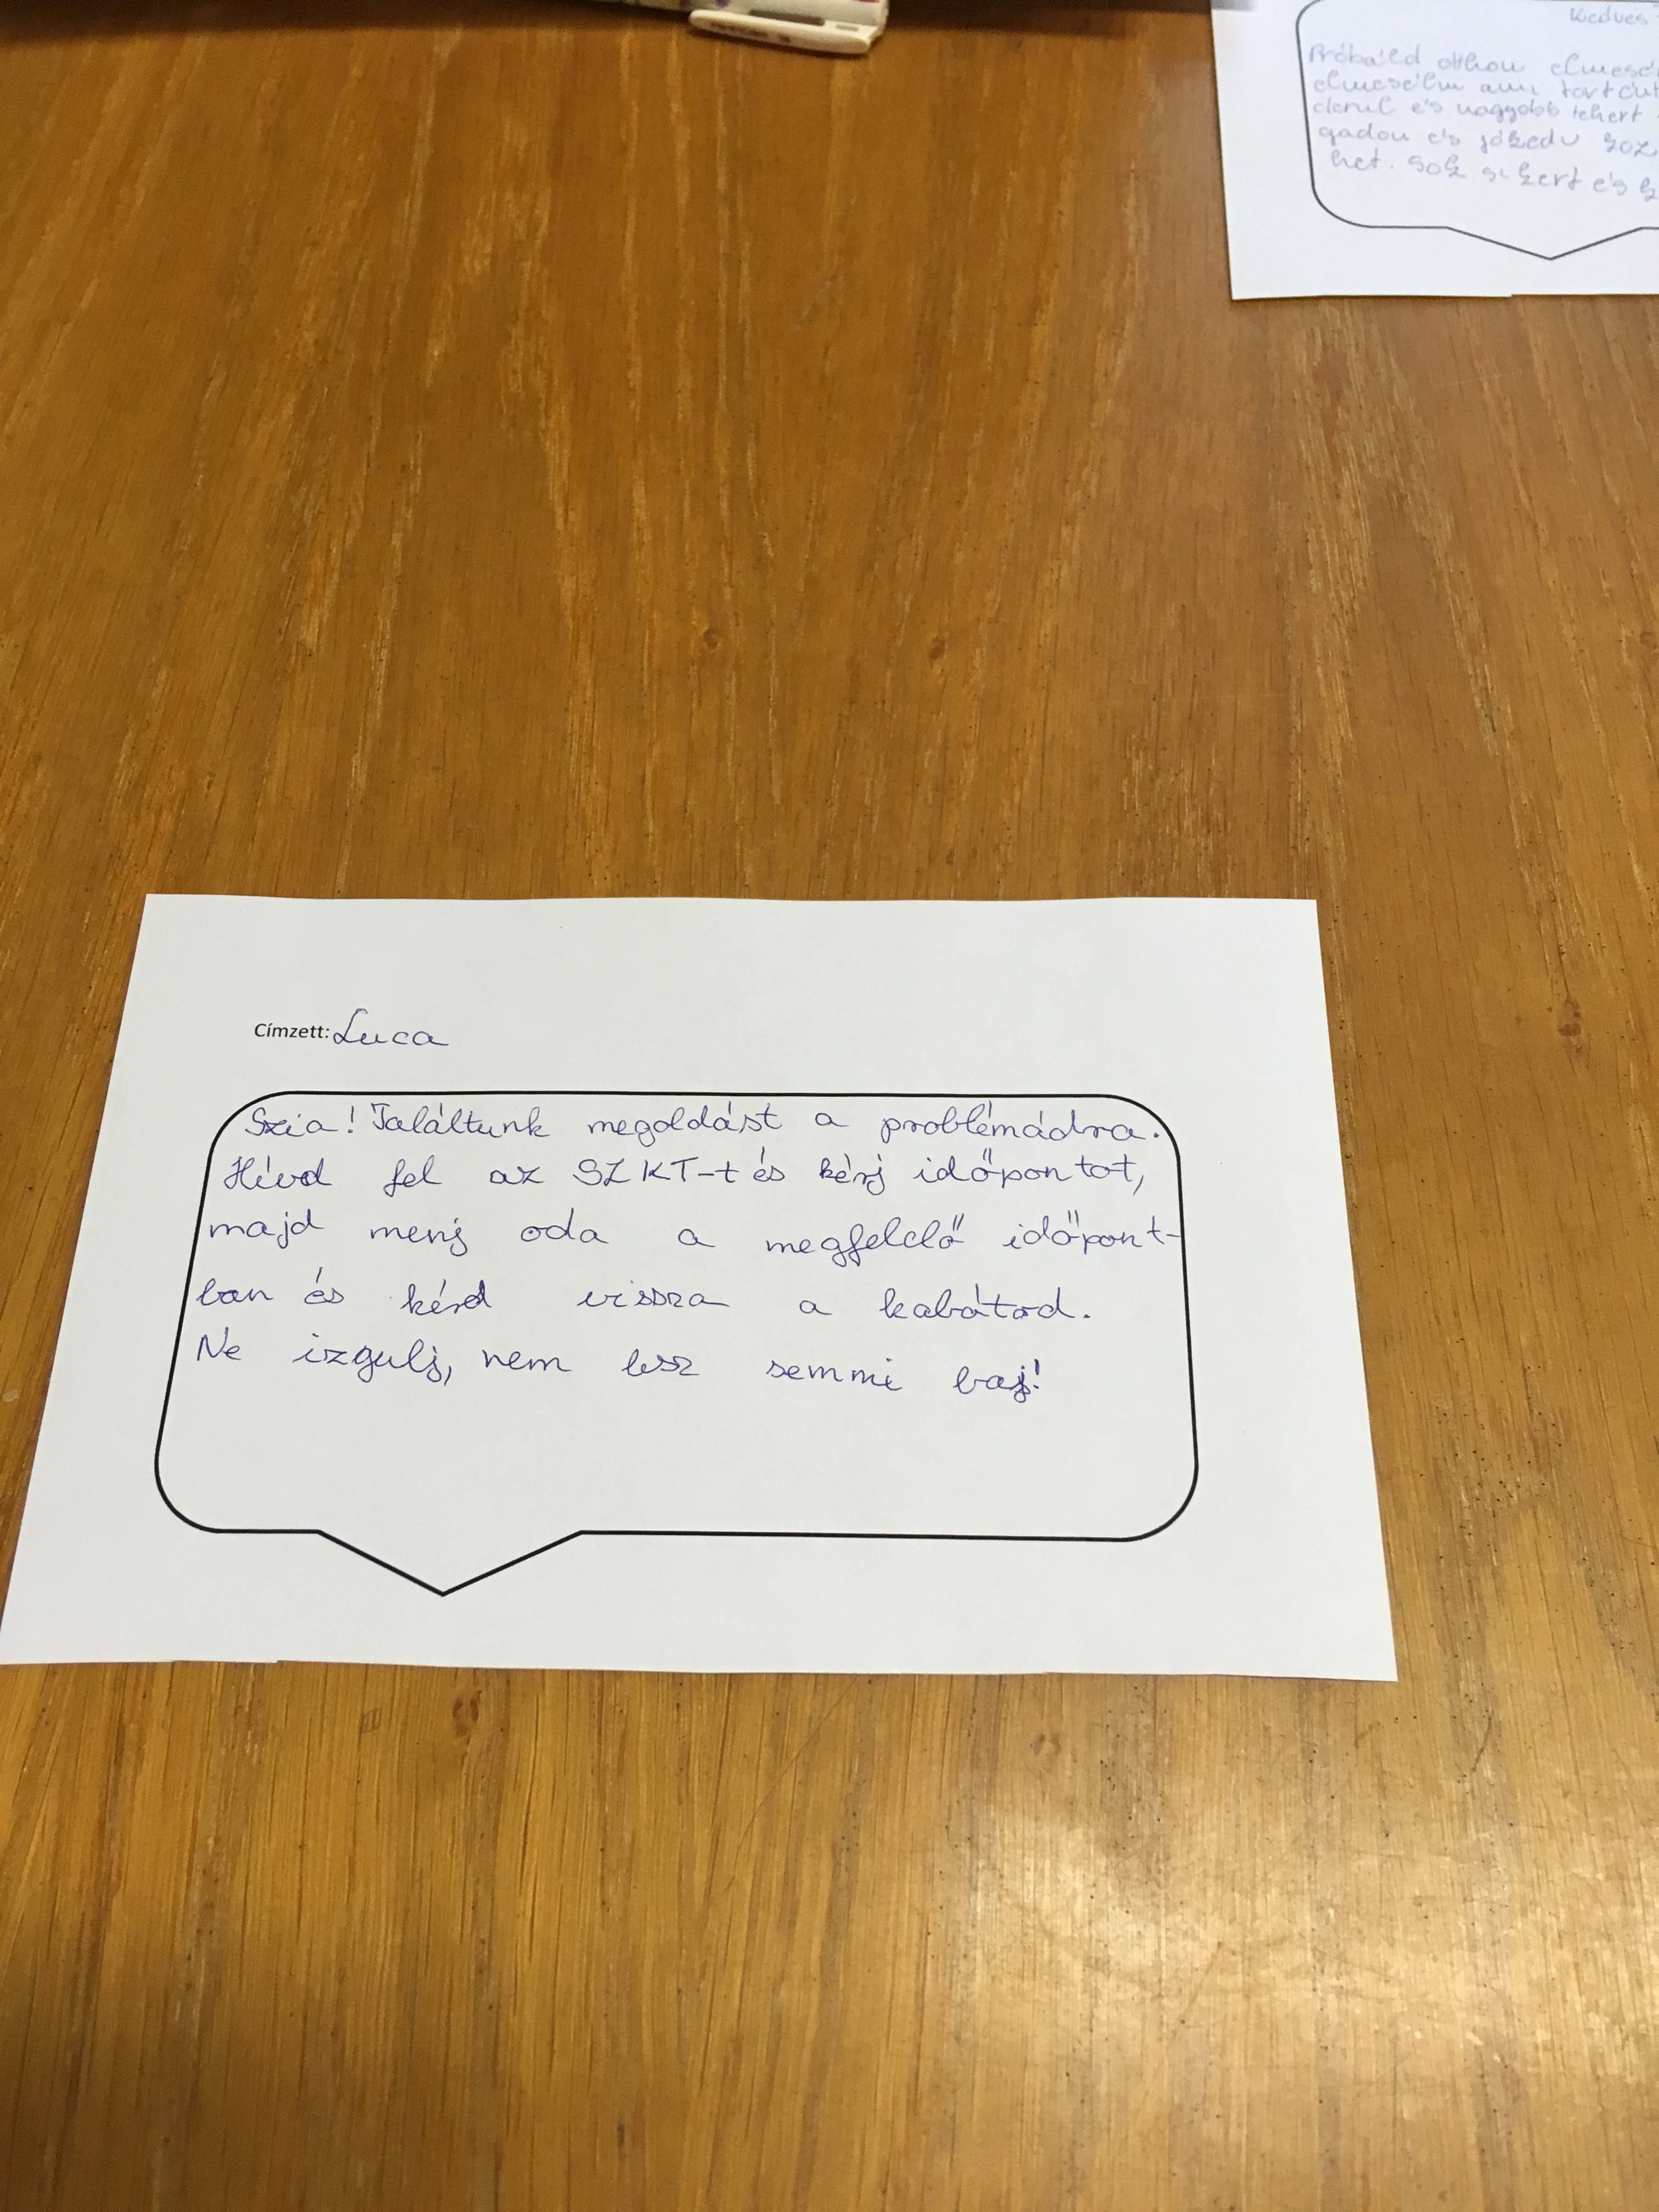 Kedves
Próbáld otthon elmesé
elmesélni ami történt
derül és nagyobb
gadon és jókedv
het. Sok sikert és
Címzett: Luca
Szia! Találtunk megoldást a problémádra.
Hívd fel az SZKT-t és kérj időpontot,
majd menj oda a megfelelő időpont-
ban és kérd vissza a kabátod.
Ne izgulj, nem lesz semmi baj!